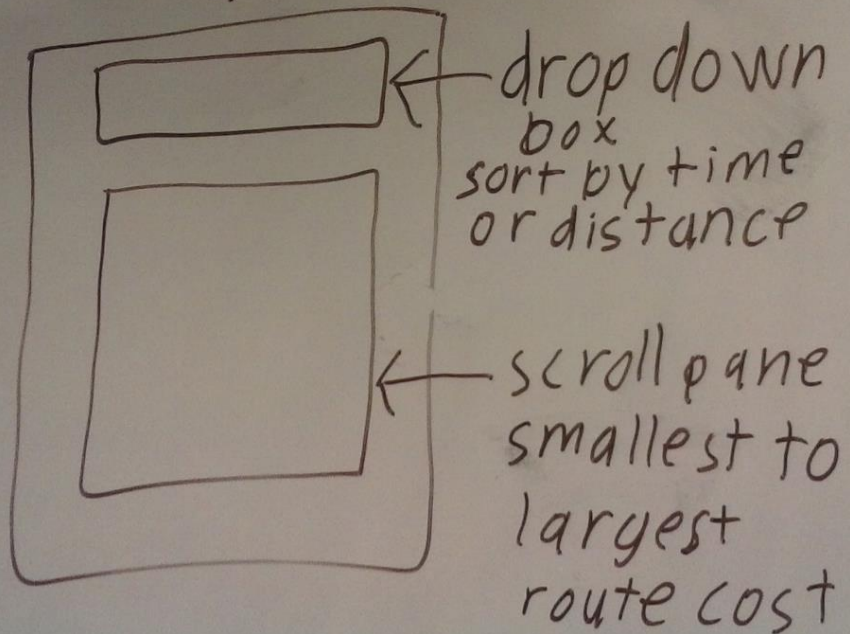 drop down
box
sort by time
or distance
scroll pane
smallest to
largest
route cost